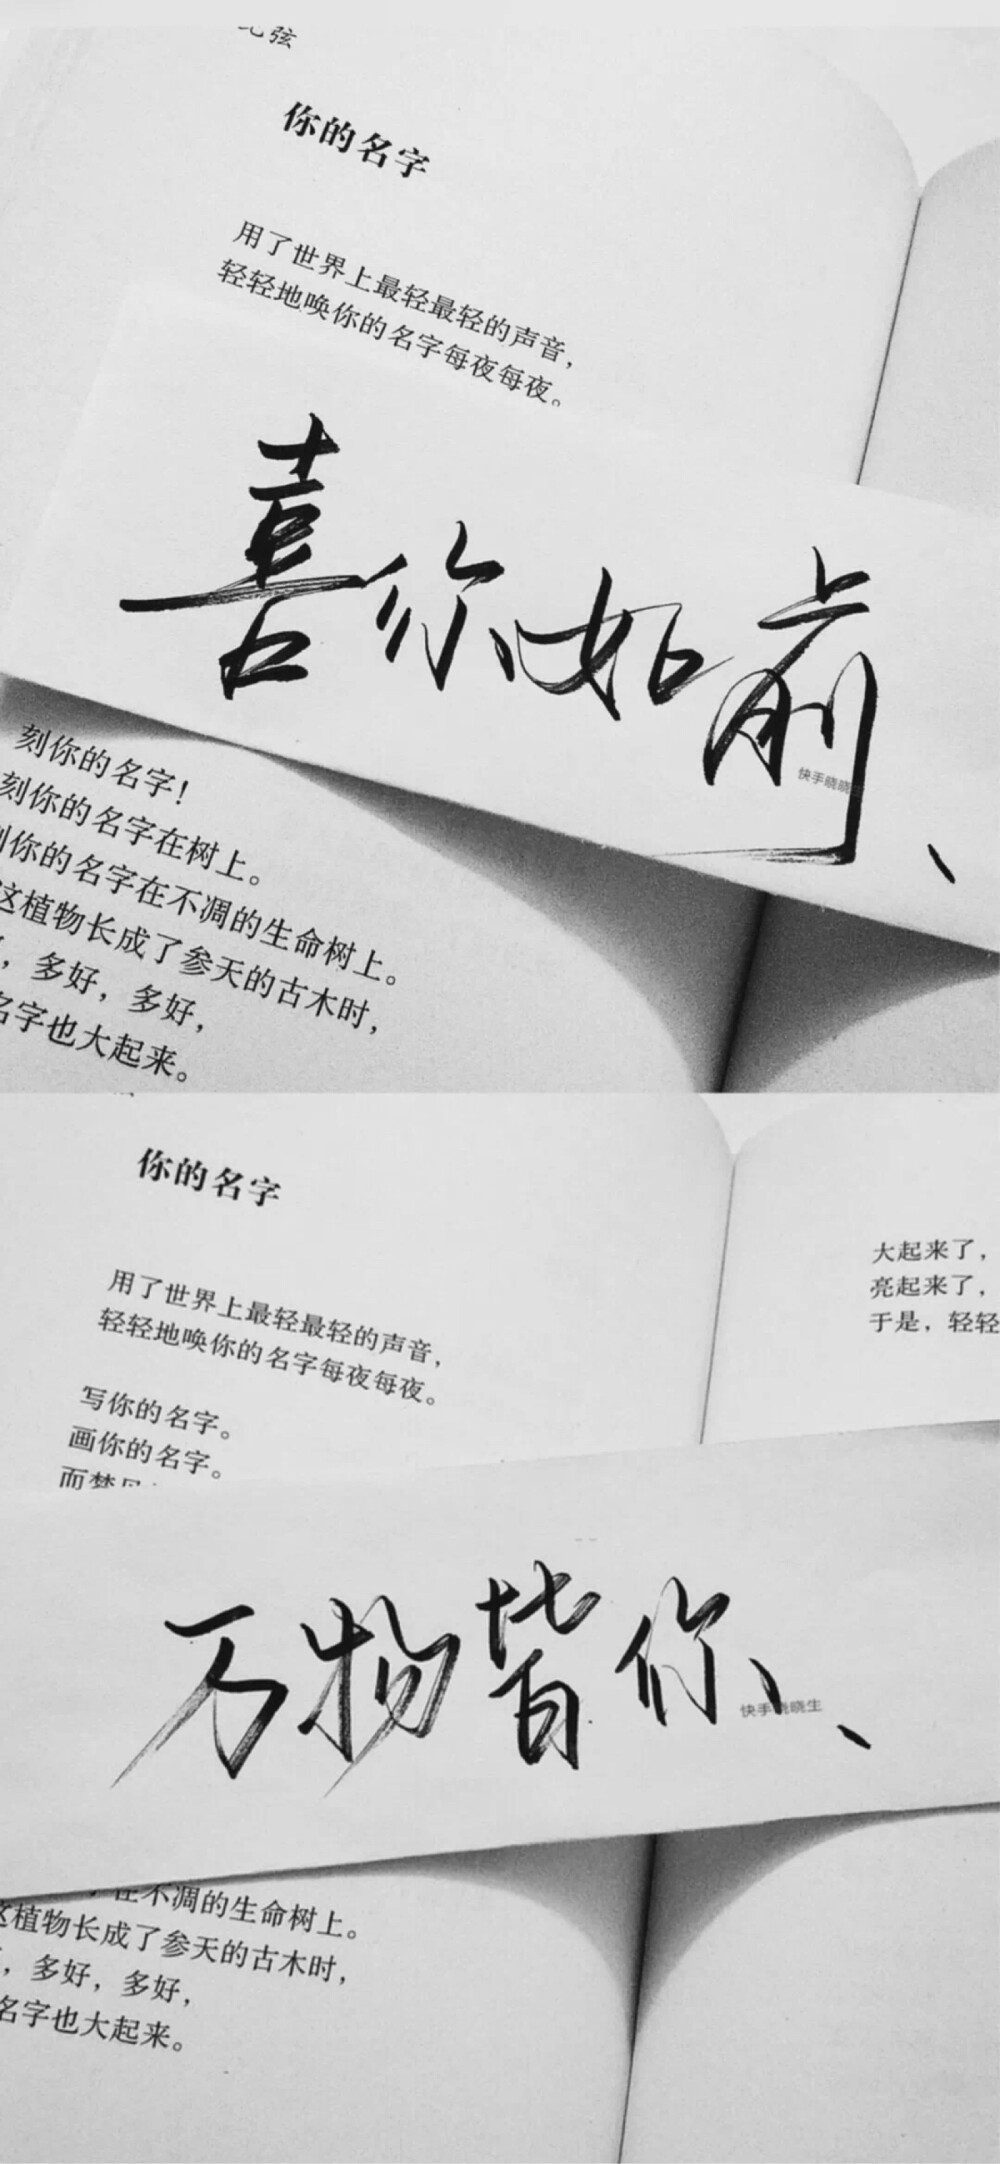 弦
你的名字
用了世界上最轻最轻的声音，
轻轻地唤你的名字每夜每夜。
喜你如前、
快手晓晓
刻你的名字！
刻你的名字在树上。
你的名字在不凋的生命树上。
这植物长成了参天的古木时，
，多好，多好，
名字也大起来。
你的名字
用了世界上最轻最轻的声音，
轻轻地唤你的名字每夜每夜。
写你的名字。
画你的名字。
而梦
大起来了，
亮起来了，
于是，轻轻
万物皆你、
快手晓晓生
在不凋的生命树上。
这植物长成了参天的古木时，
，多好，多好，
名字也大起来。